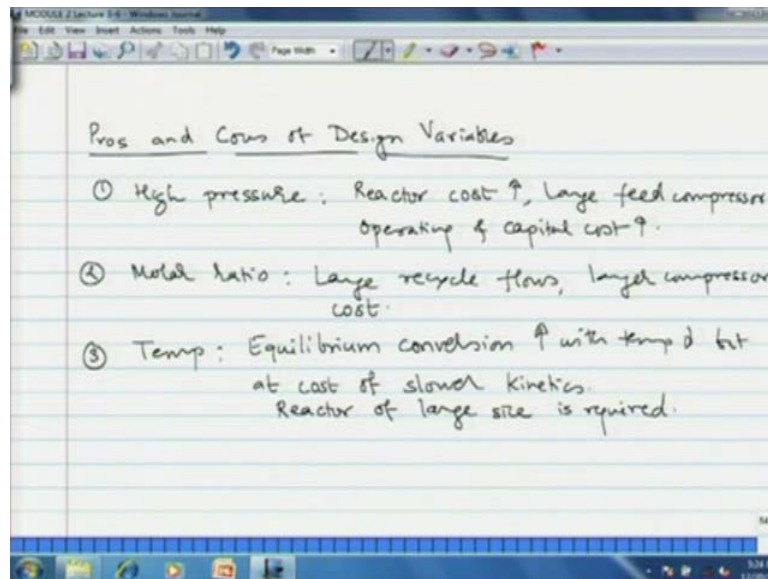 MODULE 2 Lecture 5-6 - Windows Journal
File Edit View Insert Actions Tools Help
Page Width
Pros and Cons of Design Variables
① High pressure : Reactor cost ↑, Large feed compressor
Operating & capital cost ↑.
② Molar ratio : Large recycle flows, larger compressor
cost.
③ Temp : Equilibrium conversion ↑ with temp ↓ but
at cost of slower kinetics.
Reactor of large size is required.